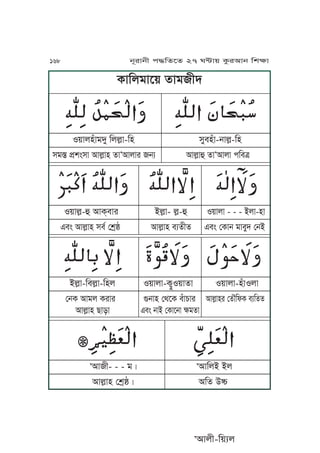 ১৬৮ নূরানী পদ্ধতিতে ২৭ ঘণ্টায় কুরআন শিক্ষা
কালিমায়ে তামজীদ
سُبْحَانَ اللهِ وَالْحَمْدُ لِلّٰهِ
সুবহাঁ-নাল্ল-হি ওয়ালহাঁমদু লিল্লা-হি
আল্লাহু তা'আলা পবিত্র সমস্ত প্রশংসা আল্লাহ তা'আলার জন্য
وَلَآاِلٰهَ اِلَّااللهُ وَاللهُ اَكْبَرْ
ওয়ালা - - - ইলা-হা ইল্লা- ল্ল-হু ওয়াল্ল-হু আক্‌বার
এবং কোন মাবুদ নেই আল্লাহ ব্যতীত এবং আল্লাহ সর্ব শ্রেষ্ঠ
لَاحَوْلَ وَلَاقُوَّةَ اِلَّا بِاللهِ
ওয়ালা-হাঁওলা ওয়ালা-কুওয়াতা ইল্লা-বিল্লা-হিল
আল্লাহর তৌফিক ব্যতিত গুনাহ থেকে বাঁচার নেক আমল করার
এবং নাই কোনো ক্ষমতা আল্লাহ ছাড়া
الْعَلِيِّ الْعَظِيْمِ
'আলিই ইল 'আজী- - - ম।
অতি উচ্চ আল্লাহ শ্রেষ্ঠ।
'আলী-য়্যিল